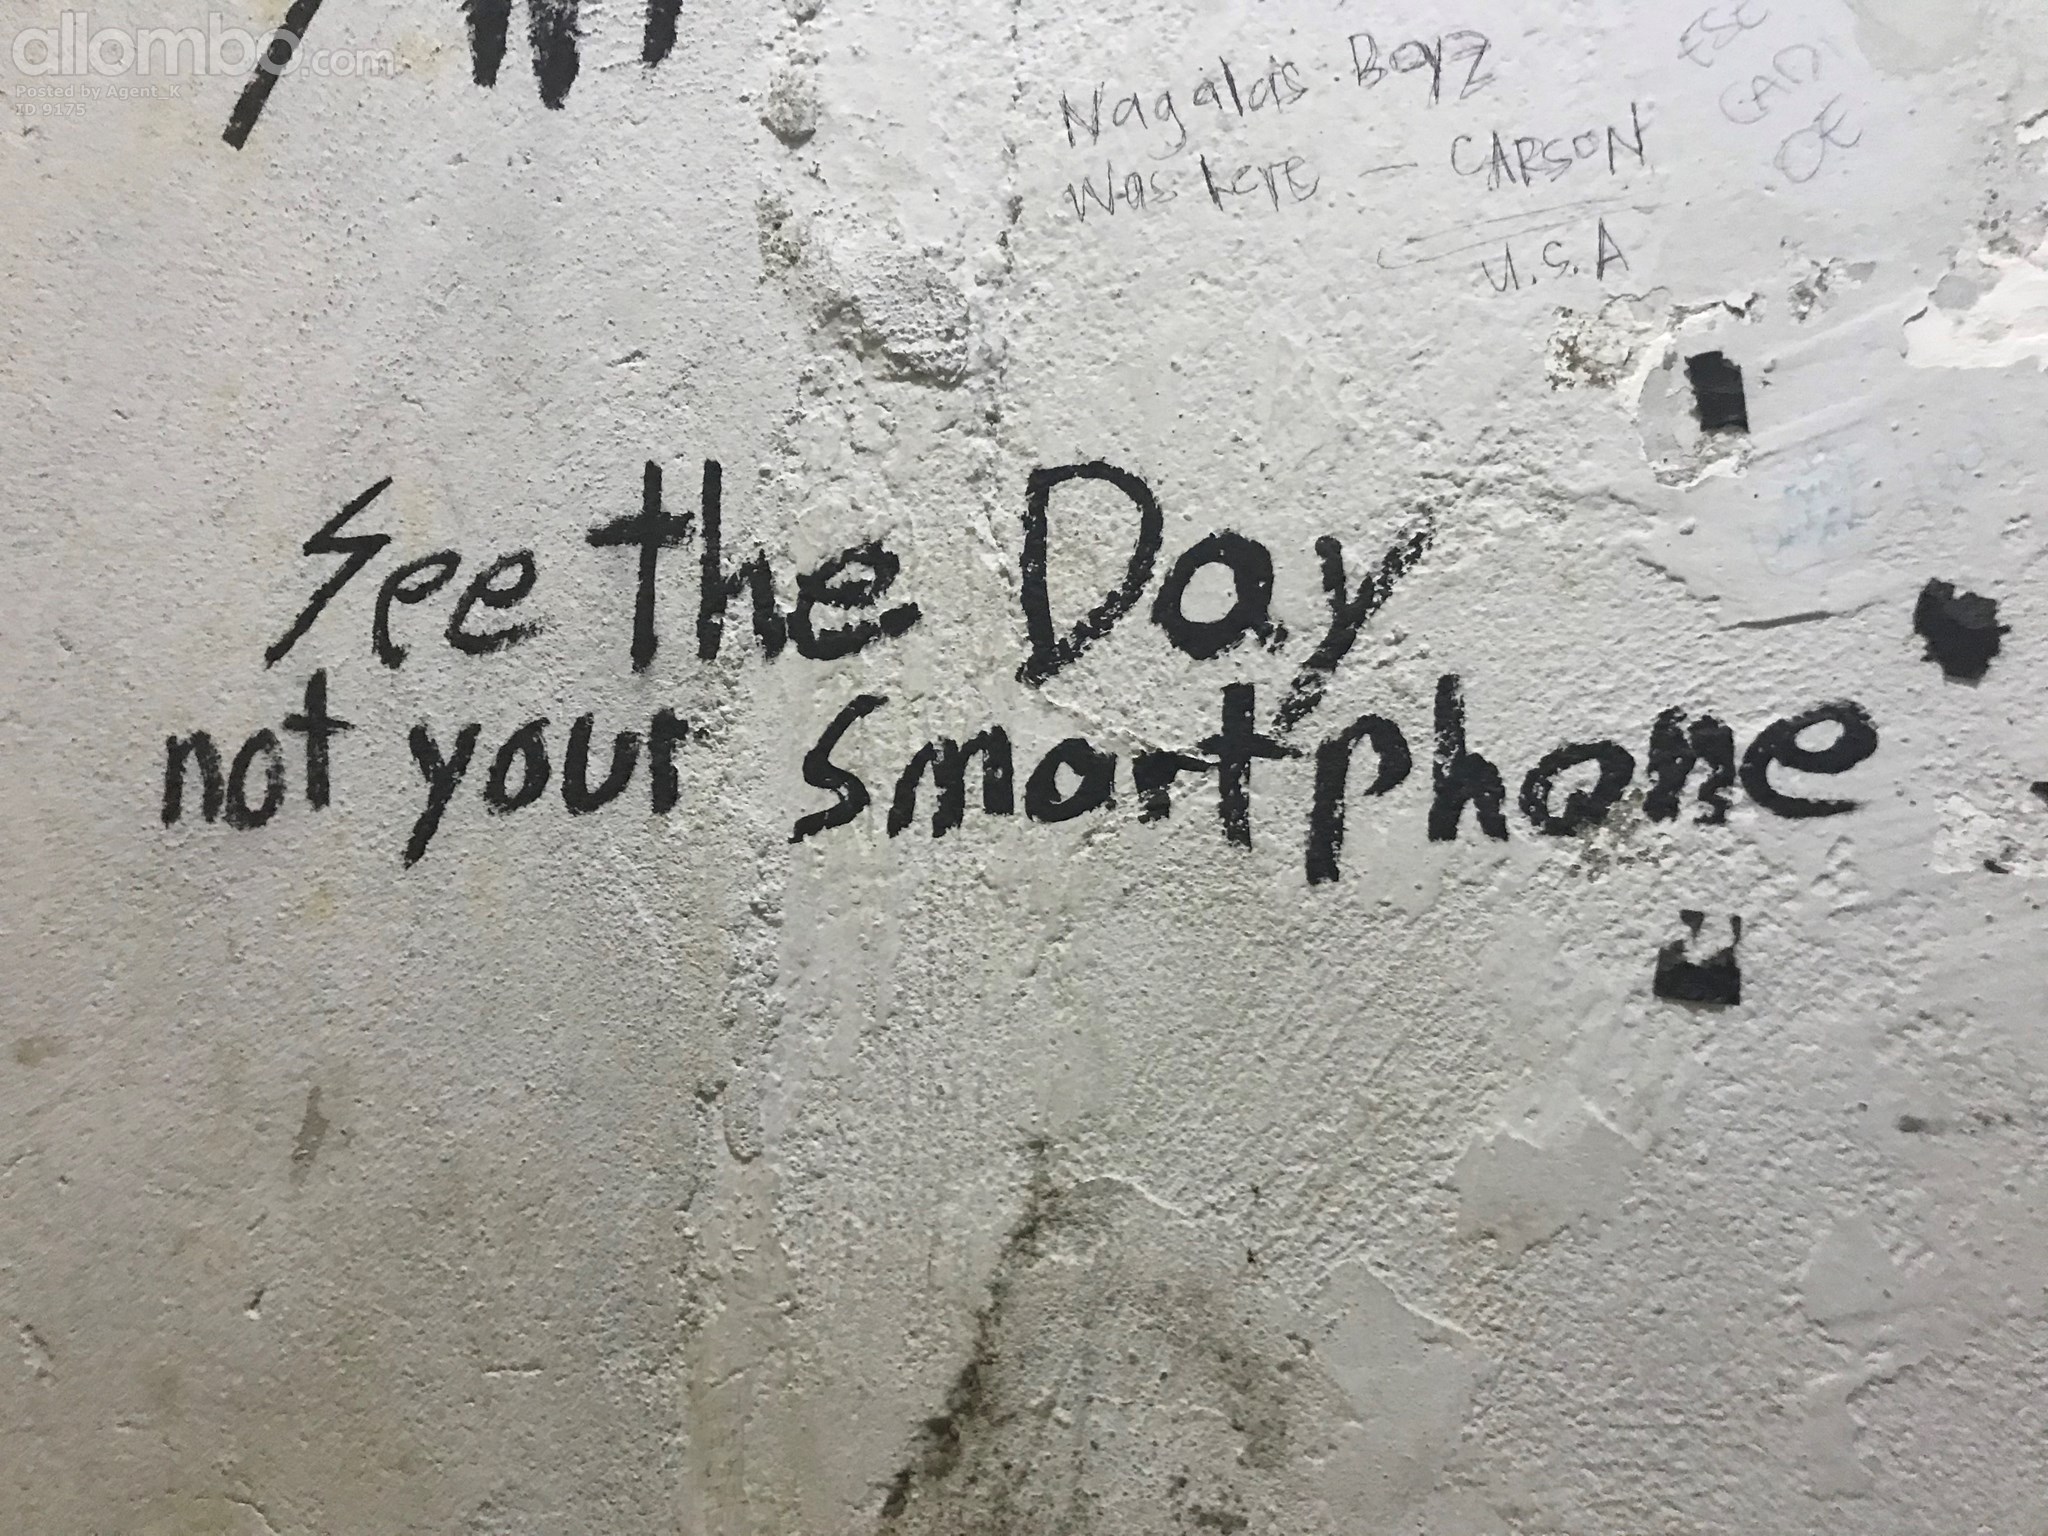 allombo.com
Posted by Agent_K
ID 9175
Nagalas Boyz
Was here - CARSON
U.S.A
See the Day
not your smartphone